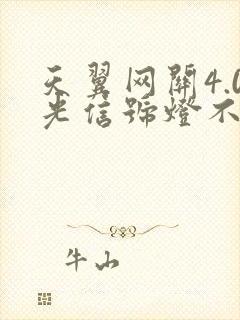 天翼网關4.0
光信號燈不
牛山